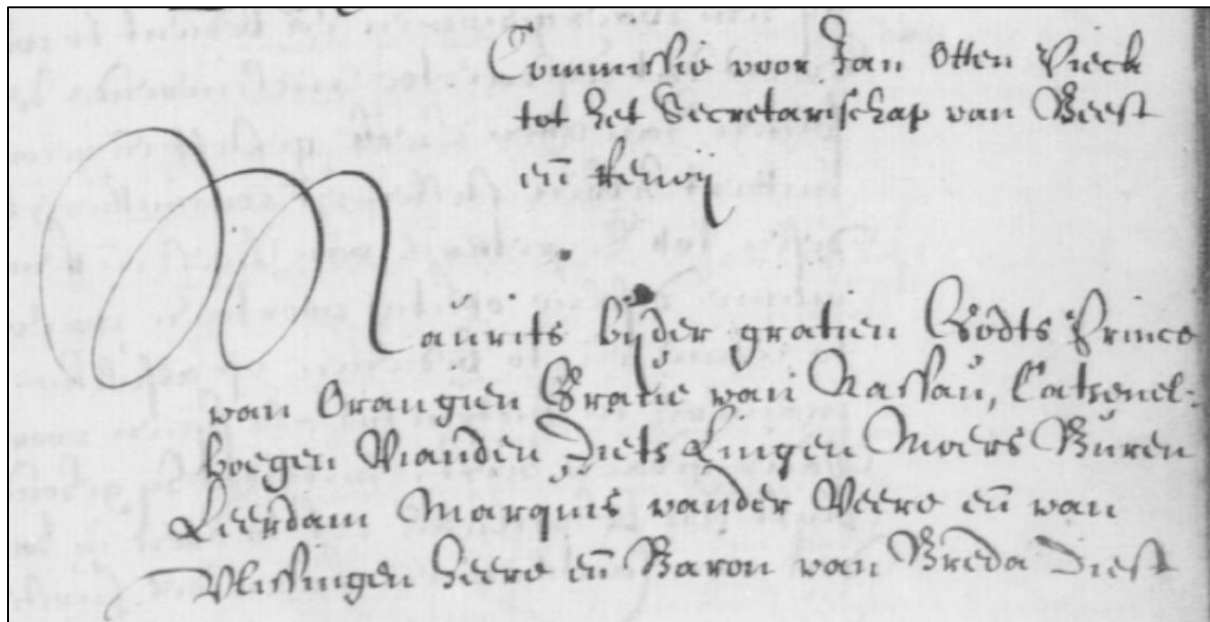 Commissie voor Jan Otten Pieck
tot het Secretarischap van Beest
en̄ Renoij
Maurits bijder gratien Godts Prince
van Orangien Grave van Nassau, Catzenel-
boegen Vianden Diets Lingen Moers Buren
Leerdam Marquis vander Veere en̄ van
Vlissingen heere en̄ Baron van Breda Diest